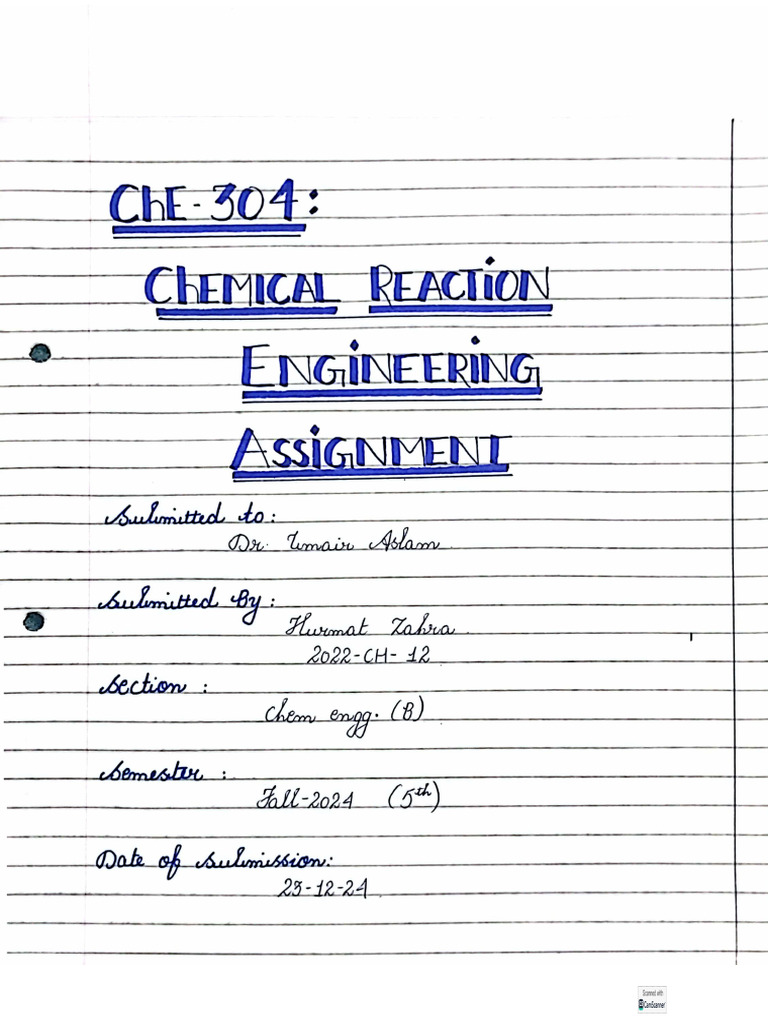 ChE-304:
CHEMICAL REACTION
ENGINEERING
ASSIGNMENT
Submitted to:
Dr. Umair Aslam
Submitted By:
Hurmat Zahra
2022-CH-12
Section :
Chem engg. (B)
Semester :
Fall-2024 (5th)
Date of Submission:
23-12-24
Scanned with
CamScanner